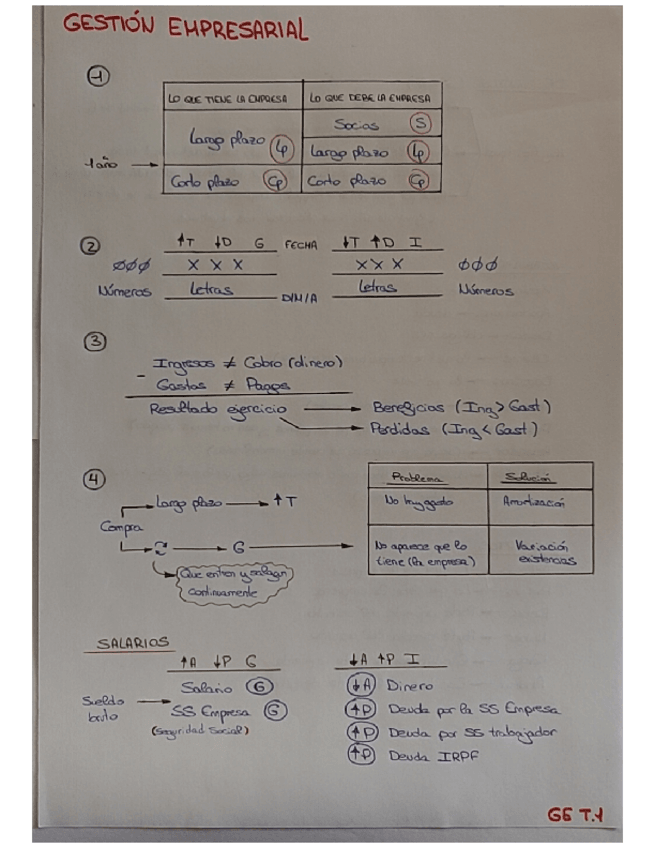 GESTIÓN EMPRESARIAL
1
LO QUE TIENE LA EMPRESA LO QUE DEBE LA EMPRESA
Socios S
Largo plazo Lp
Largo plazo Lp
1 año → Corto plazo Cp Corto plazo Cp
2
↑T ↓D G FECHA ↓T ↑D I
000 X X X X X X 000
Números Letras D/M/A Letras Números
3
Ingresos ≠ Cobro (dinero)
- Gastos ≠ Pagos
Resultado ejercicio → Beneficios (Ing > Gast)
→ Perdidas (Ing < Gast)
4
Problema Solución
Largo plazo → ↑T No hay gasto Amortización
Compra
→ G → No aparece que lo tiene (la empresa) Variación existencias
Que entren y salgan
continuamente
SALARIOS
↑A ↓P G ↓A ↑P I
Salario G ↓A Dinero
Sueldo bruto → SS Empresa G ↑P Deuda por la SS Empresa
(Seguridad Social) ↑P Deuda por SS trabajador
↑P Deuda IRPF
GE T.1